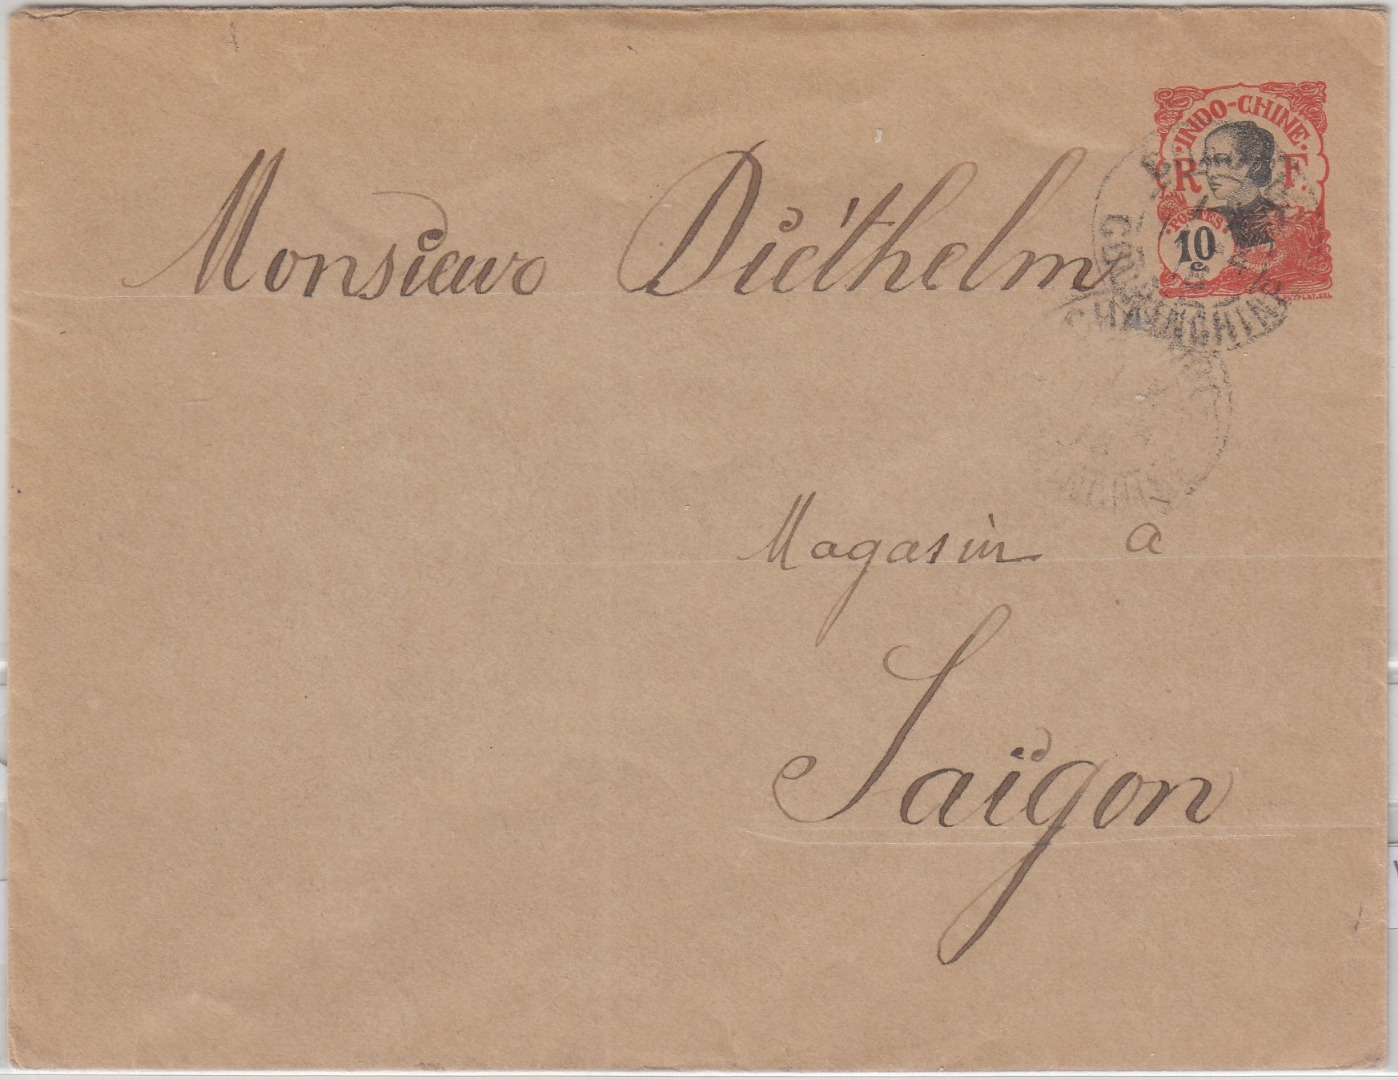 Monsieur Diéthelm
Magasin a
Saïgon
INDO-CHINE
R F.
POSTES
10 c
COCHINCHINE